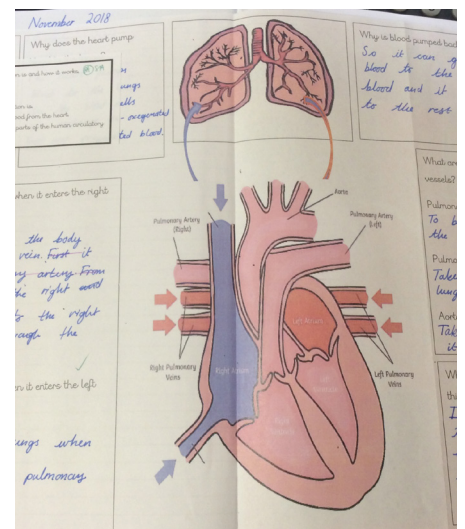 November 2018
Why does the heart pump
is and how it works.
ungs
oxegenated
ted blood.
ood from the heart
parts of the human circulatory
Why is blood pumped bac
So it can g
blood to the
blood and it
to the rest
What are
vessels?
Pulmon
To b
the
Pulmo
Take
lung
Aort
Take
it
when it enters the right
the body
vein. First it
artery From
the right
the right
rough the
n it enters the left
ungs when
pulmonary
Aorta
Pulmonary Artery
(Right)
Pulmonary Artery
(Left)
Left Atrium
Right Pulmonary
Veins
Right Atrium
Left Pulmonary
Veins